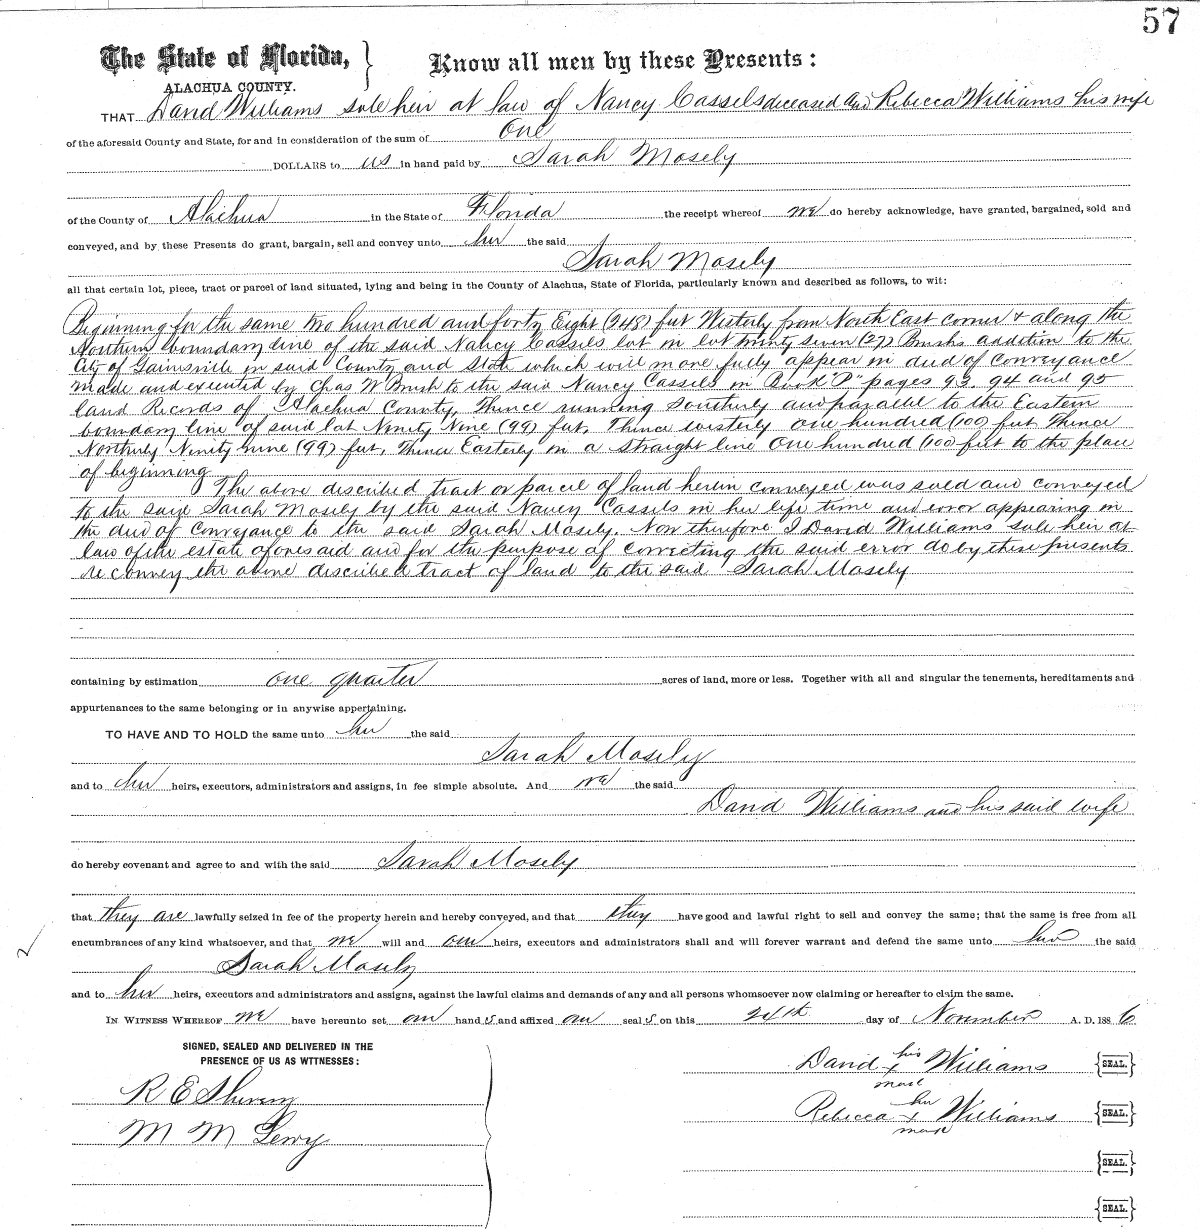 57
The State of Florida, } Know all men by these Presents:
ALACHUA COUNTY.
THAT David Williams sole heir at law of Nancy Cassels deceased and Rebecca Williams his wife
of the aforesaid County and State, for and in consideration of the sum of One
DOLLARS to us in hand paid by Sarah Mosely
of the County of Alachua in the State of Florida the receipt whereof we do hereby acknowledge, have granted, bargained, sold and
conveyed, and by these Presents do grant, bargain, sell and convey unto her the said
Sarah Mosely
all that certain lot, piece, tract or parcel of land situated, lying and being in the County of Alachua, State of Florida, particularly known and described as follows, to wit:
Beginning for the same two hundred and forty Eight (248) feet Westerly from North East corner & along the
Northern boundary line of the said Nancy Cassels lot in lot twenty seven (27) Brushs addition to the
City of Gainsville in said County and State which will more fully appear in deed of Conveyance
made and executed by Chas W Brush to the said Nancy Cassels in Book "P" pages 93. 94 and 95
land Records of Alachua County, Thence running Southerly and parallel to the Eastern
boundary line of said lot Ninety Nine (99) feet, Thence westerly one hundred (100) feet Thence
Northerly Ninety nine (99) feet, Thence Easterly in a straight line One hundred (100) feet to the place
of beginning
The above discribed tract or parcel of land herein conveyed was sold and conveyed
to the said Sarah Mosely by the said Nancy Cassels in her life time and error appearing in
the deed of conveyance to the said Sarah Mosely. Now therefore I David Williams sole heir at
law of the estate aforesaid and for the purpose of correcting the said error do by these presents
reconvey the above discribed tract of land to the said Sarah Mosely
containing by estimation one quarter acres of land, more or less. Together with all and singular the tenements, hereditaments and
appurtenances to the same belonging or in anywise appertaining.
TO HAVE AND TO HOLD the same unto her the said
Sarah Mosely
and to her heirs, executors, administrators and assigns, in fee simple absolute. And we the said
David Williams and his said wife
do hereby covenant and agree to and with the said Sarah Mosely
that they are lawfully seized in fee of the property herein and hereby conveyed, and that they have good and lawful right to sell and convey the same; that the same is free from all
encumbrances of any kind whatsoever, and that we will and our heirs, executors and administrators shall and will forever warrant and defend the same unto her the said
Sarah Mosely
and to her heirs, executors and administrators and assigns, against the lawful claims and demands of any and all persons whomsoever now claiming or hereafter to claim the same.
IN WITNESS WHEREOF we have hereunto set our hand s and affixed our seal s on this 24th day of November A. D. 188 6
SIGNED, SEALED AND DELIVERED IN THE
PRESENCE OF US AS WITNESSES:
David his x mark Williams {SEAL.}
R E
Rebecca her x mark Williams {SEAL.}
M M
{SEAL.}
{SEAL.}